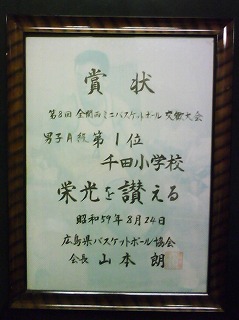 賞状
第8回 全関西ミニバスケットボール交歓大会
男子A級 第1位
千田小学校
栄光を讃える
昭和59年8月24日
広島県バスケットボール協会
会長 山本朗